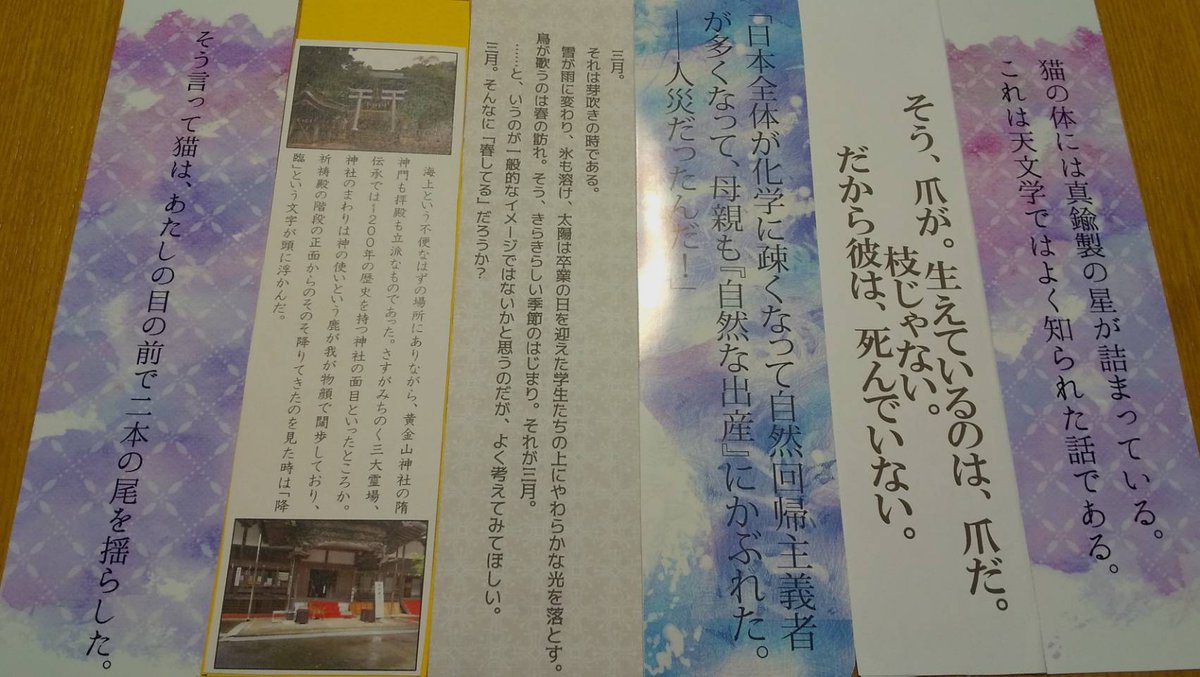 猫の体には真鍮製の星が詰まっている。
これは天文学ではよく知られた話である。
そう、爪が。生えているのは、爪だ。
枝じゃない。
だから彼は、死んでいない。
「日本全体が化学に疎くなって自然回帰主義者
が多くなって、母親も『自然な出産』にかぶれた。
――人災だったんだ!」
三月。
それは芽吹きの時である。
雪が雨に変わり、氷も溶け、太陽は卒業の日を迎えた学生たちの上にやわらかな光を落とす。
鳥が歌うのは春の訪れ。そう、きらきらしい季節のはじまり。それが三月。
……と、いうのが一般的なイメージではないかと思うのだが、よく考えてみてほしい。
三月。そんなに「春してる」だろうか?
海上という不便なはずの場所にありながら、黄金山神社の隋
神門も拝殿も立派なものであった。さすがみちのく三大霊場、
伝承では1200年の歴史を持つ神社の面目といったところか。
神社のまわりは神の使いという鹿が我が物顔で闊歩しており、
祈祷殿の階段の正面からのそのそ降りてきたのを見た時は「降
臨」という文字が頭に浮かんだ。
そう言って猫は、あたしの目の前で二本の尾を揺らした。